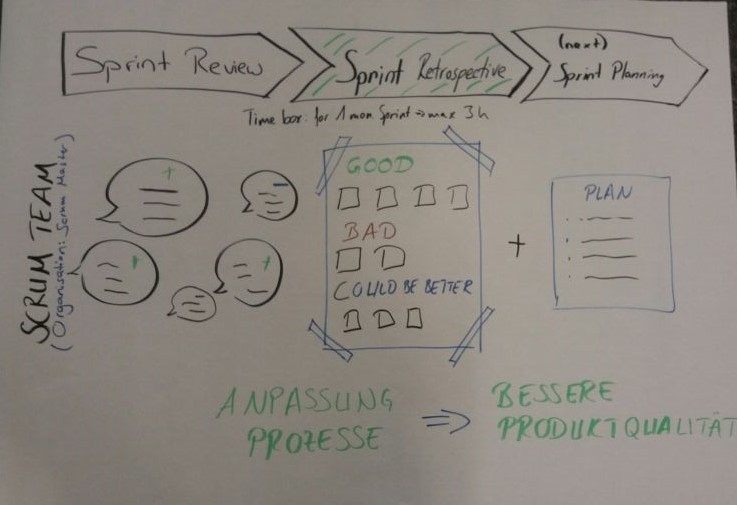 Sprint Review
Sprint Retrospective
(next)
Sprint Planning
Time box: for 1 mon. Sprint → max 3h
SCRUM TEAM
(Organisation: Scrum Master)
GOOD
BAD
COULD BE BETTER
+
PLAN
ANPASSUNG
PROZESSE
⇒
BESSERE
PRODUKTQUALITÄT